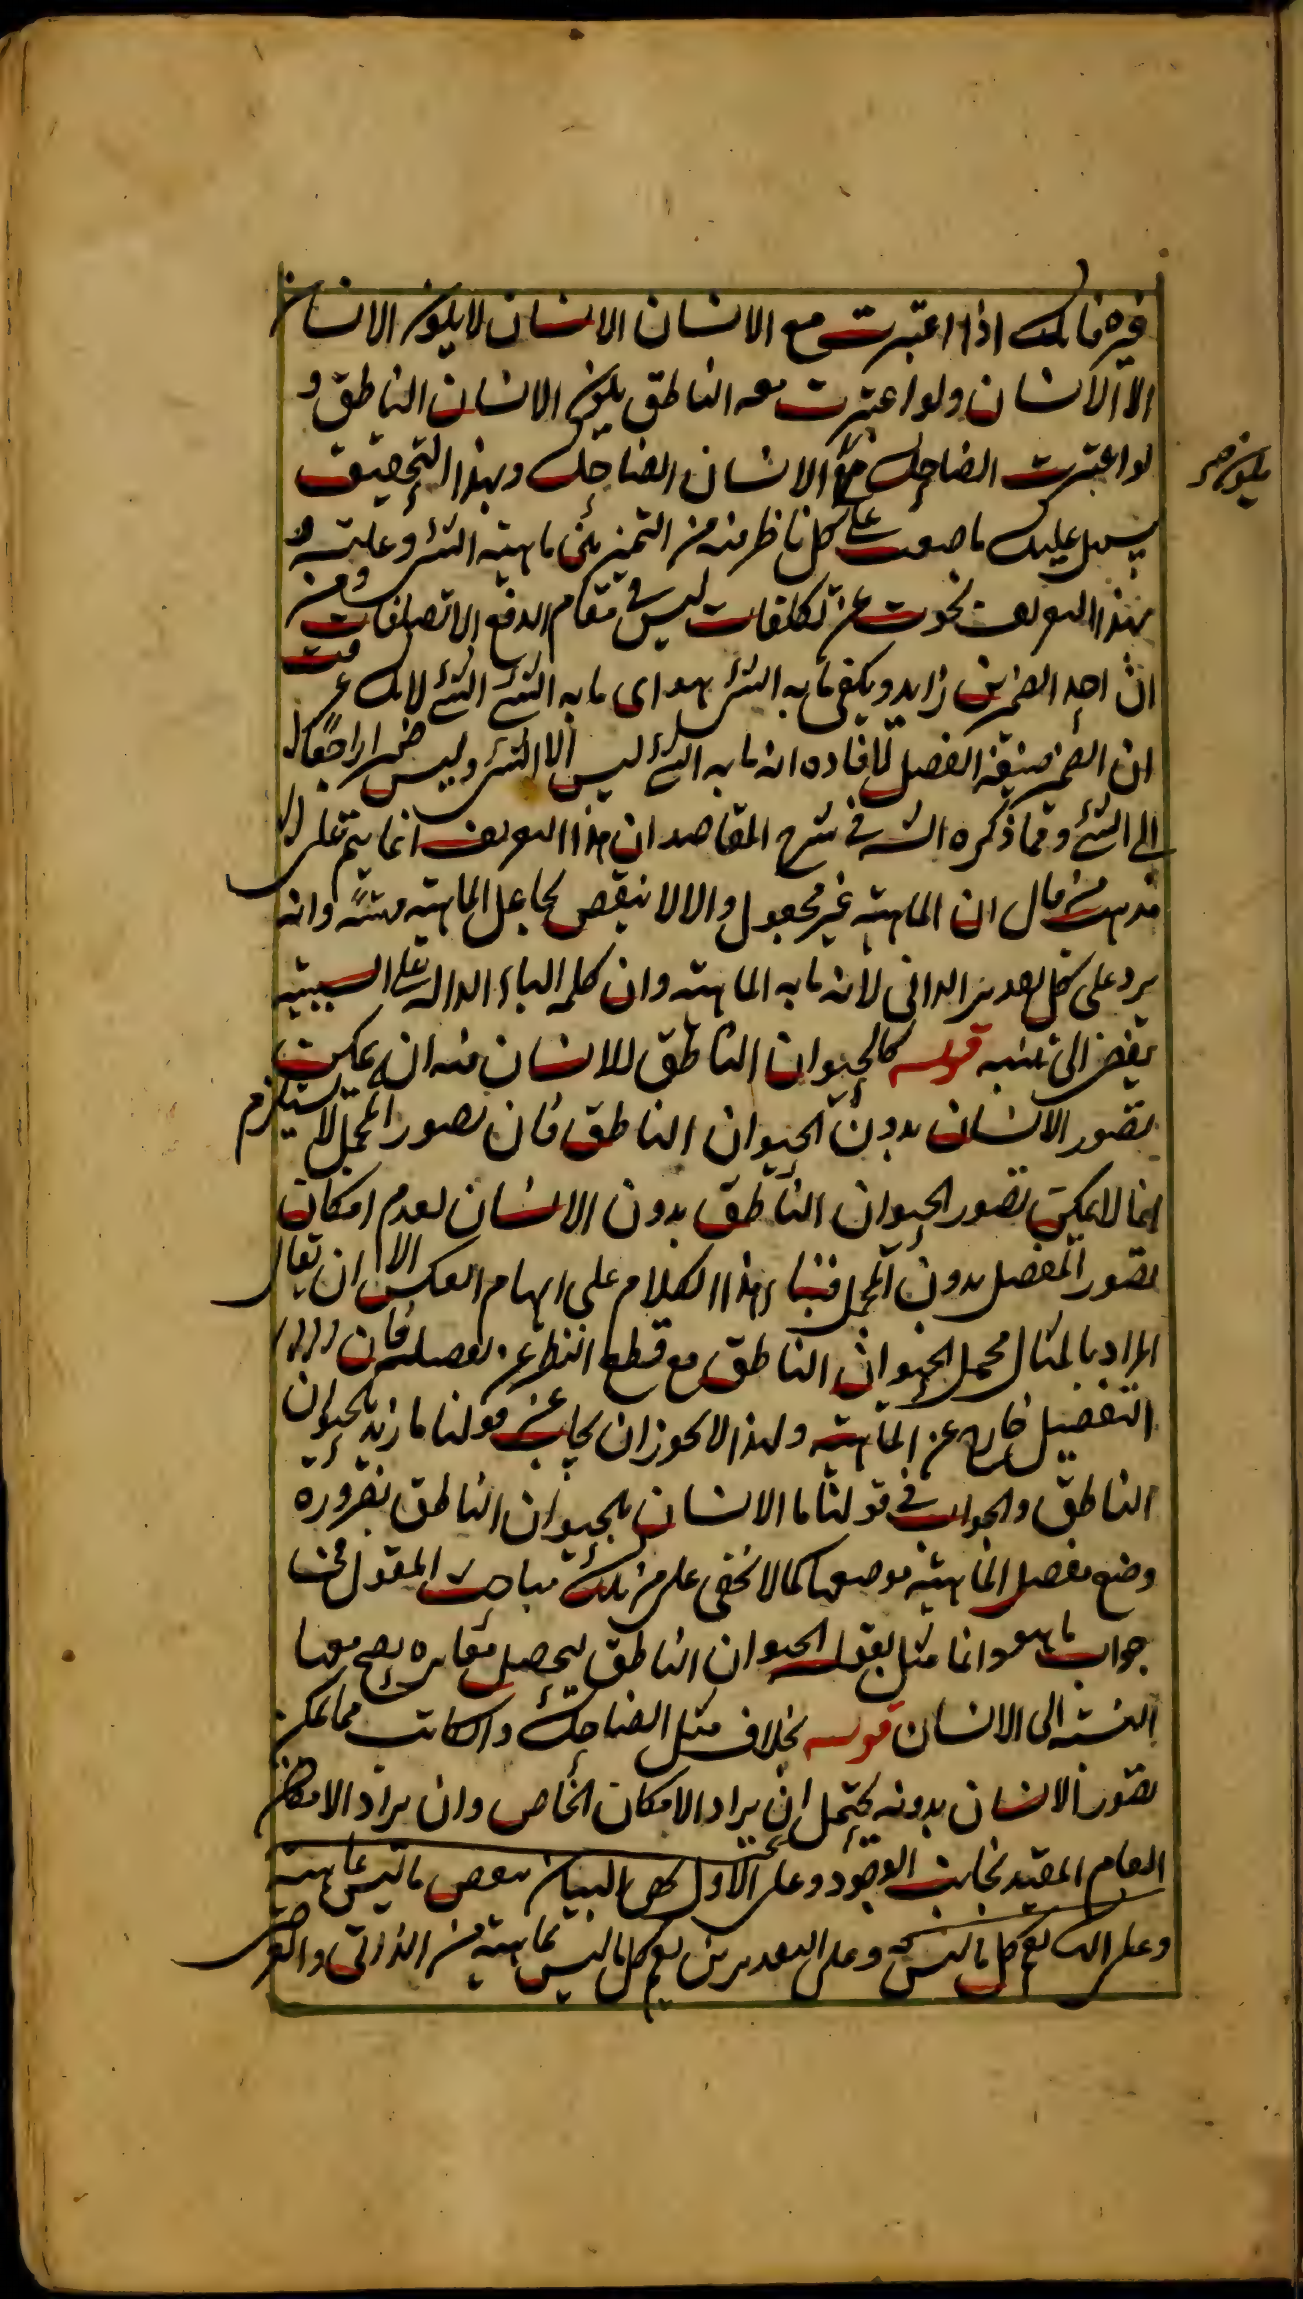 غيره فانك اذا اعتبرت مع الانسان الانسان لا يكون الانسان
الا الانسان ولو اعتبرت معه الناطق يكون الانسان الناطق و
لو اعتبرت الضاحك مع الانسان الضاحك وبهذا التحقيق
يكون صح
يسهل عليك ما صعب على كل ناظر منه من التميز بين ماهية الشئ وعلته و
بهذا التعريف نجوت عن تكلفات ليس في مقام الدفع الا تصلفات ومن
ان احد الضميرين زايد ويكفى ما به الشئ هو اى ما به الشئ الشئ لانك عرفت
ان الضمير صيغة الفصل لافاده انه ما به الشئ ليس الا الشئ وليس ضميرا راجعا
الى الشئ و مما ذكره الش في شرح المقاصد ان هذا التعريف انما يتم على
مذهب من قال ان الماهية غير مجعول والا لانتقض بجاعل الماهية وانه
يرد على كل تقدير الذاتى لانه ما به الماهية وان كلمه الباء الداله على السببية
يقتضى الى قوله كالحيوان الناطق للانسان فيه انه يمكن
تصور الانسان بدون الحيوان الناطق فان تصور المجمل لا يستلزم
انما لا يمكن تصور الحيوان الناطق بدون الانسان لعدم امكان
تصور المفصل بدون المجمل فبناء هذا الكلام على ايهام العكس الا ان يقال
المراد بالمثال مجمل الحيوان الناطق مع قطع النظر عن تفصيله فان
التفصيل خارج عن الماهية ولهذا لا يجوز ان يجاب عن قولنا ما زيد بالحيوان
الناطق والجواب في قولنا ما الانسان بالحيوان الناطق بضروره
وضع مفصل الماهية موضعها كما لا يخفى على من مباحث المقول في
جواب ما هو وانما مثل بقوله الحيوان الناطق ليحصل مغايره يصح معها
النسبة الى الانسان قوله بخلاف مثل الضاحك والكاتب مما يمكن
تصور الانسان بدونه يحتمل ان يراد الامكان الخاص وان يراد الامكان
العام المقيد بجانب الوجود وعلى الاول البيان ببعض ما ليس بماهية
وعلى الثانى يعم كل ما ليس وعلى التقديرين يعم كل ما ليس بماهية من الذاتى والعرضى